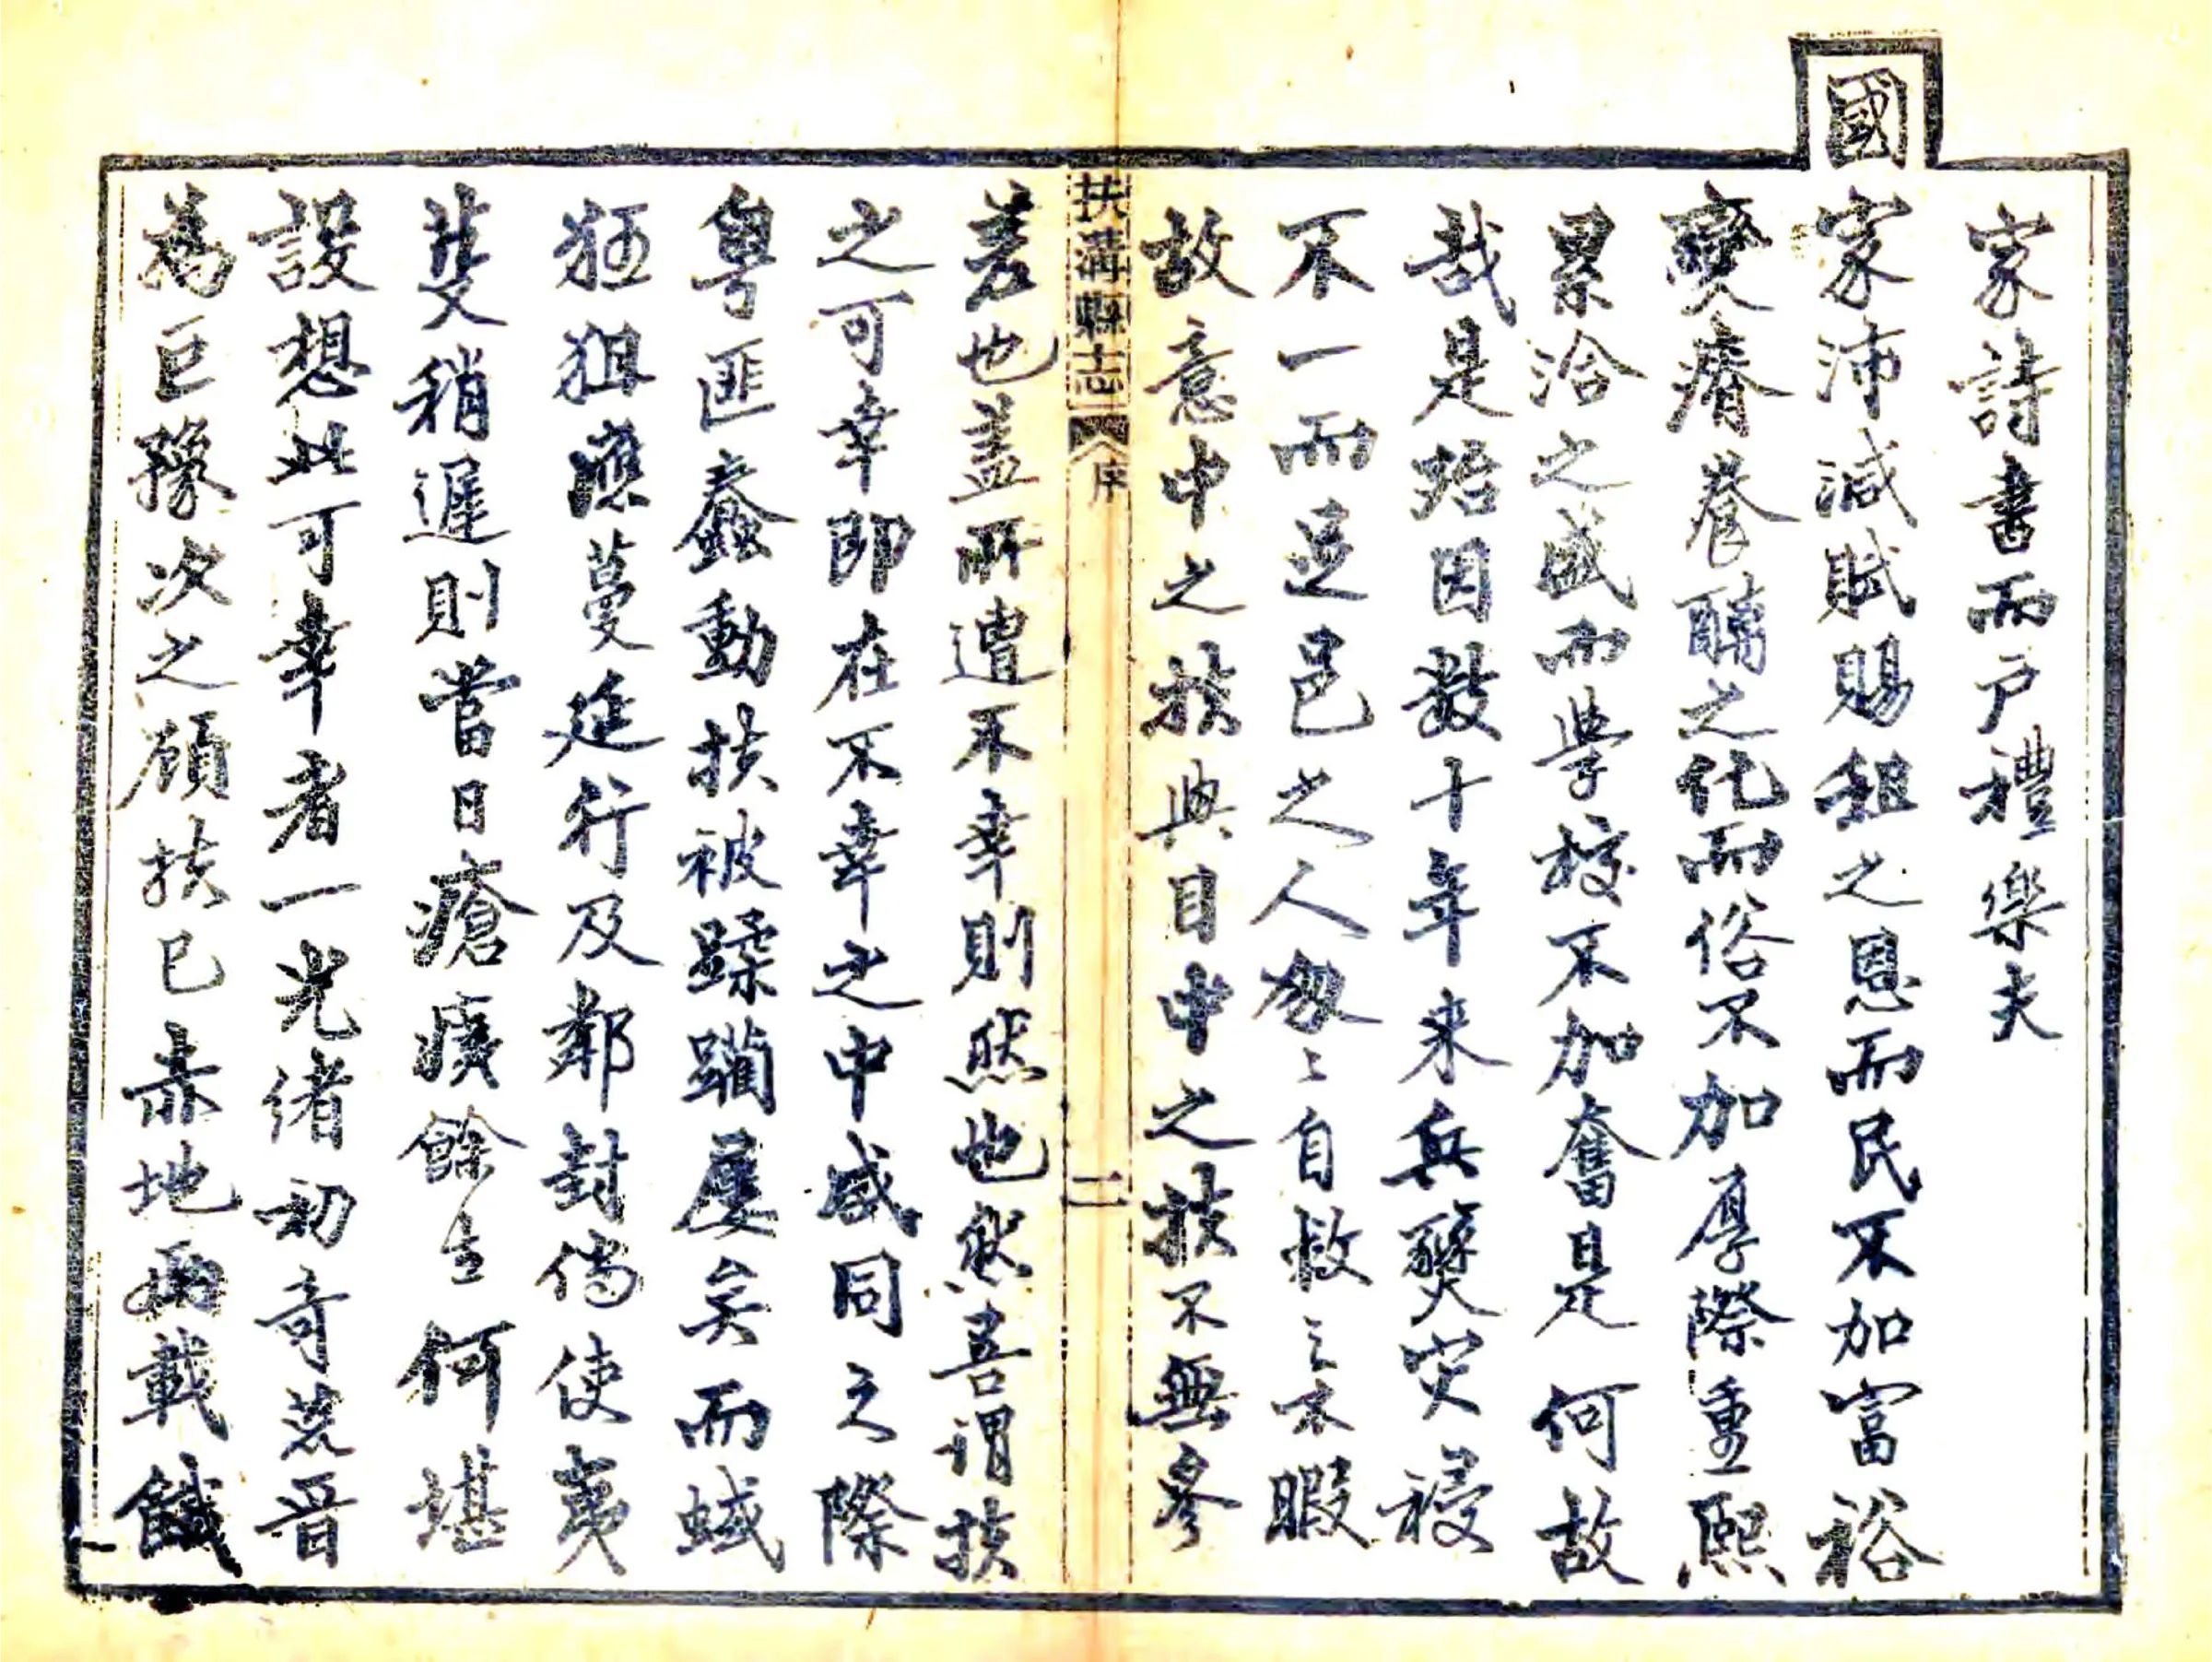 家詩書而戶禮樂夫
國
家沛減賦賜租之恩而民不加富裕
夔瘠養醨之化而俗不加厚際重熙
累洽之盛而學校不加奮是何故
哉是殆因數十年來兵燹灾祲
不一而足邑之人紛〻自救之不暇
故意中之扶與目中之扶不無參
差也蓋所遭不幸則然也然吾謂扶
之可幸即在不幸之中咸同之際
粵匪蠢動扶被蹂躪屢矣而蜮
狂狙應蔓延行及鄰封倘使夷
芟稍遲則當日瘡痍餘生何堪
設想此可幸者一光緒初奇荒晋
為巨豫次之顧扶已赤地兩載餓
扶溝縣志
序
二